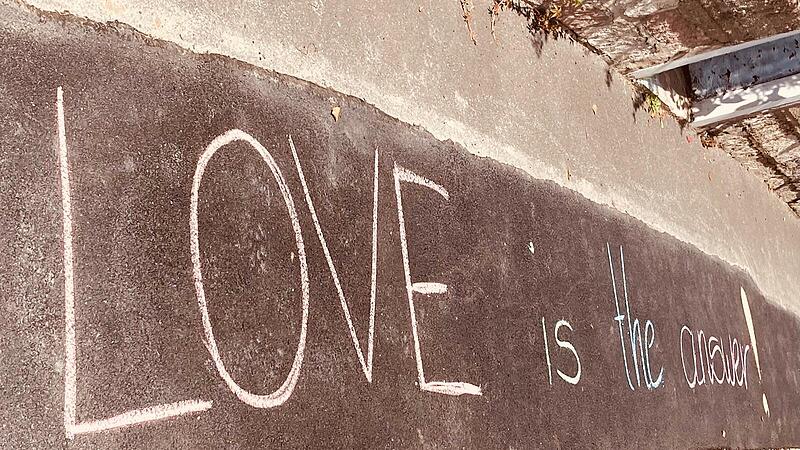 LOVE is the answer!